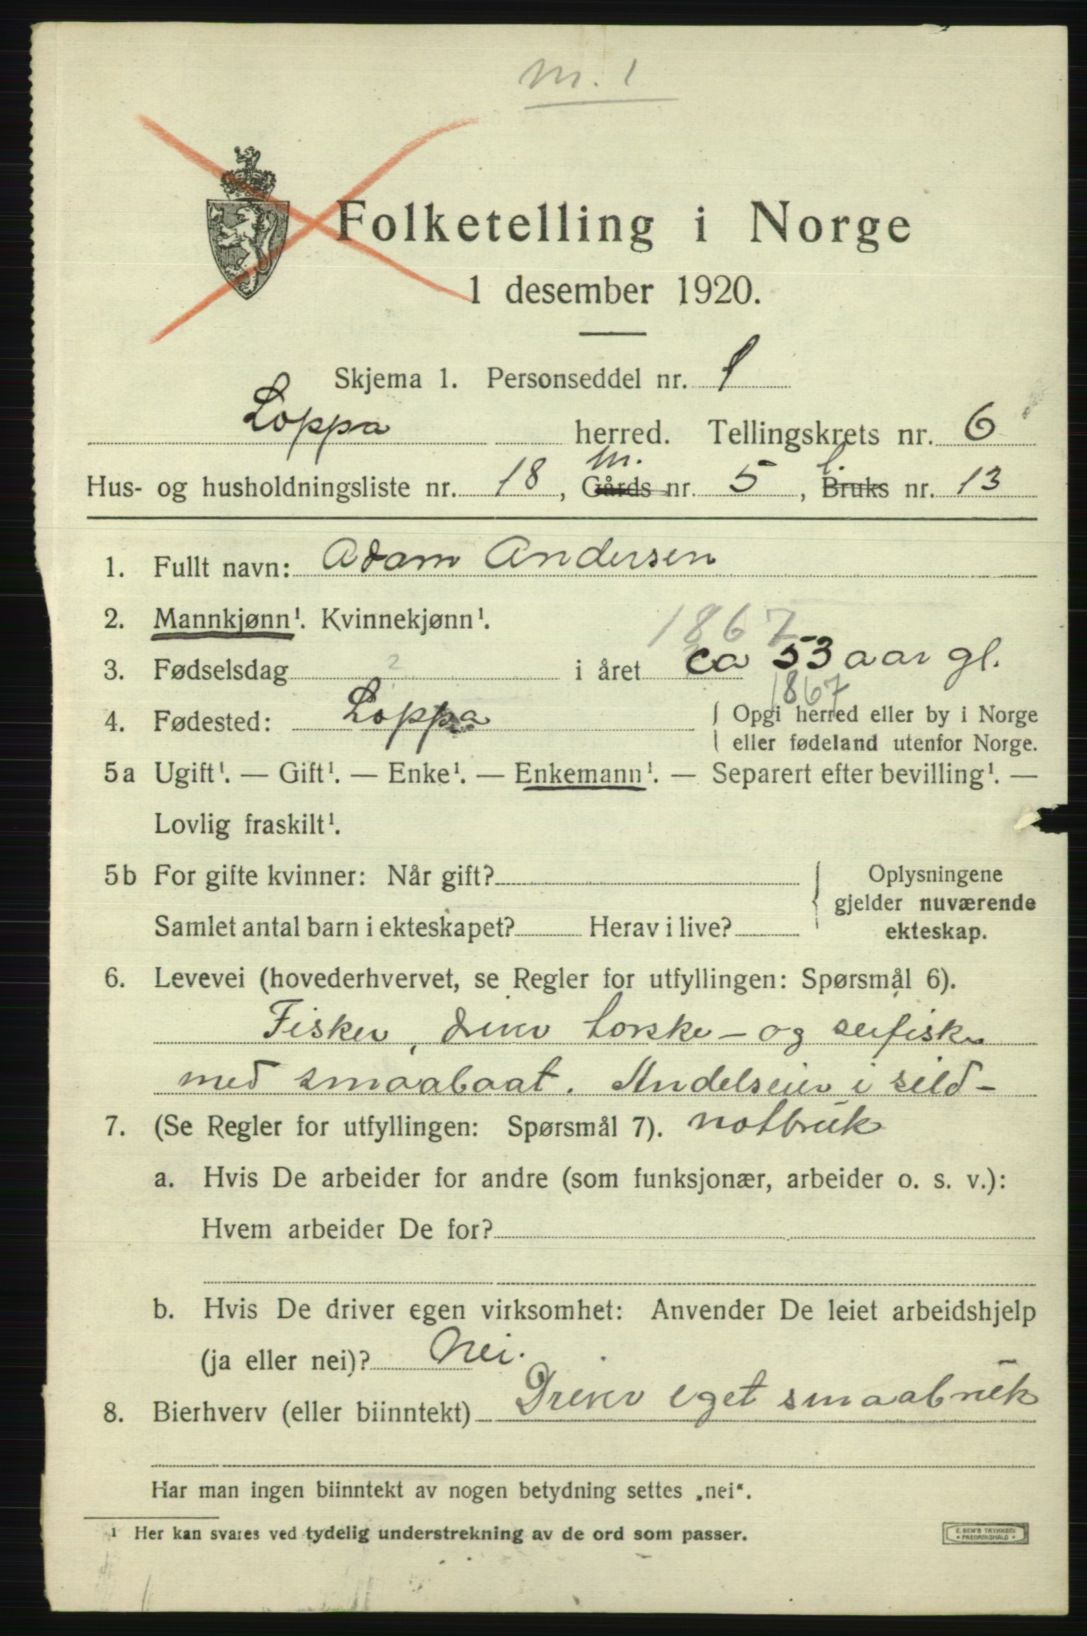 m. 1
Folketelling i Norge
1 desember 1920.
Skjema 1. Personseddel nr. 1
Loppa herred. Tellingskrets nr. 6
m. l.
Hus- og husholdningsliste nr. 18, Gårds nr. 5, Bruks nr. 13
1. Fullt navn: Adam Andersen
2. Mannkjønn¹. Kvinnekjønn¹.
1867
3. Fødselsdag ? i året ca 53 aar gl.
1867
4. Fødested: Loppa { Opgi herred eller by i Norge
eller fødeland utenfor Norge.
5a Ugift¹. — Gift¹. — Enke¹. — Enkemann¹. — Separert efter bevilling¹. —
Lovlig fraskilt¹.
5b For gifte kvinner: Når gift? { Oplysningene
gjelder nuværende
Samlet antal barn i ekteskapet? Herav i live? ekteskap.
6. Levevei (hovederhvervet, se Regler for utfyllingen: Spørsmål 6).
Fisker, driver torske- og seifiske
med smaabaat. Andelseier i sild-
7. (Se Regler for utfyllingen: Spørsmål 7). notbruk
a. Hvis De arbeider for andre (som funksjonær, arbeider o. s. v.):
Hvem arbeider De for?
b. Hvis De driver egen virksomhet: Anvender De leiet arbeidshjelp
(ja eller nei)? Nei.
8. Bierhverv (eller biinntekt) Driver eget smaabruk
Har man ingen biinntekt av nogen betydning settes „nei“.
¹ Her kan svares ved tydelig understrekning av de ord som passer.